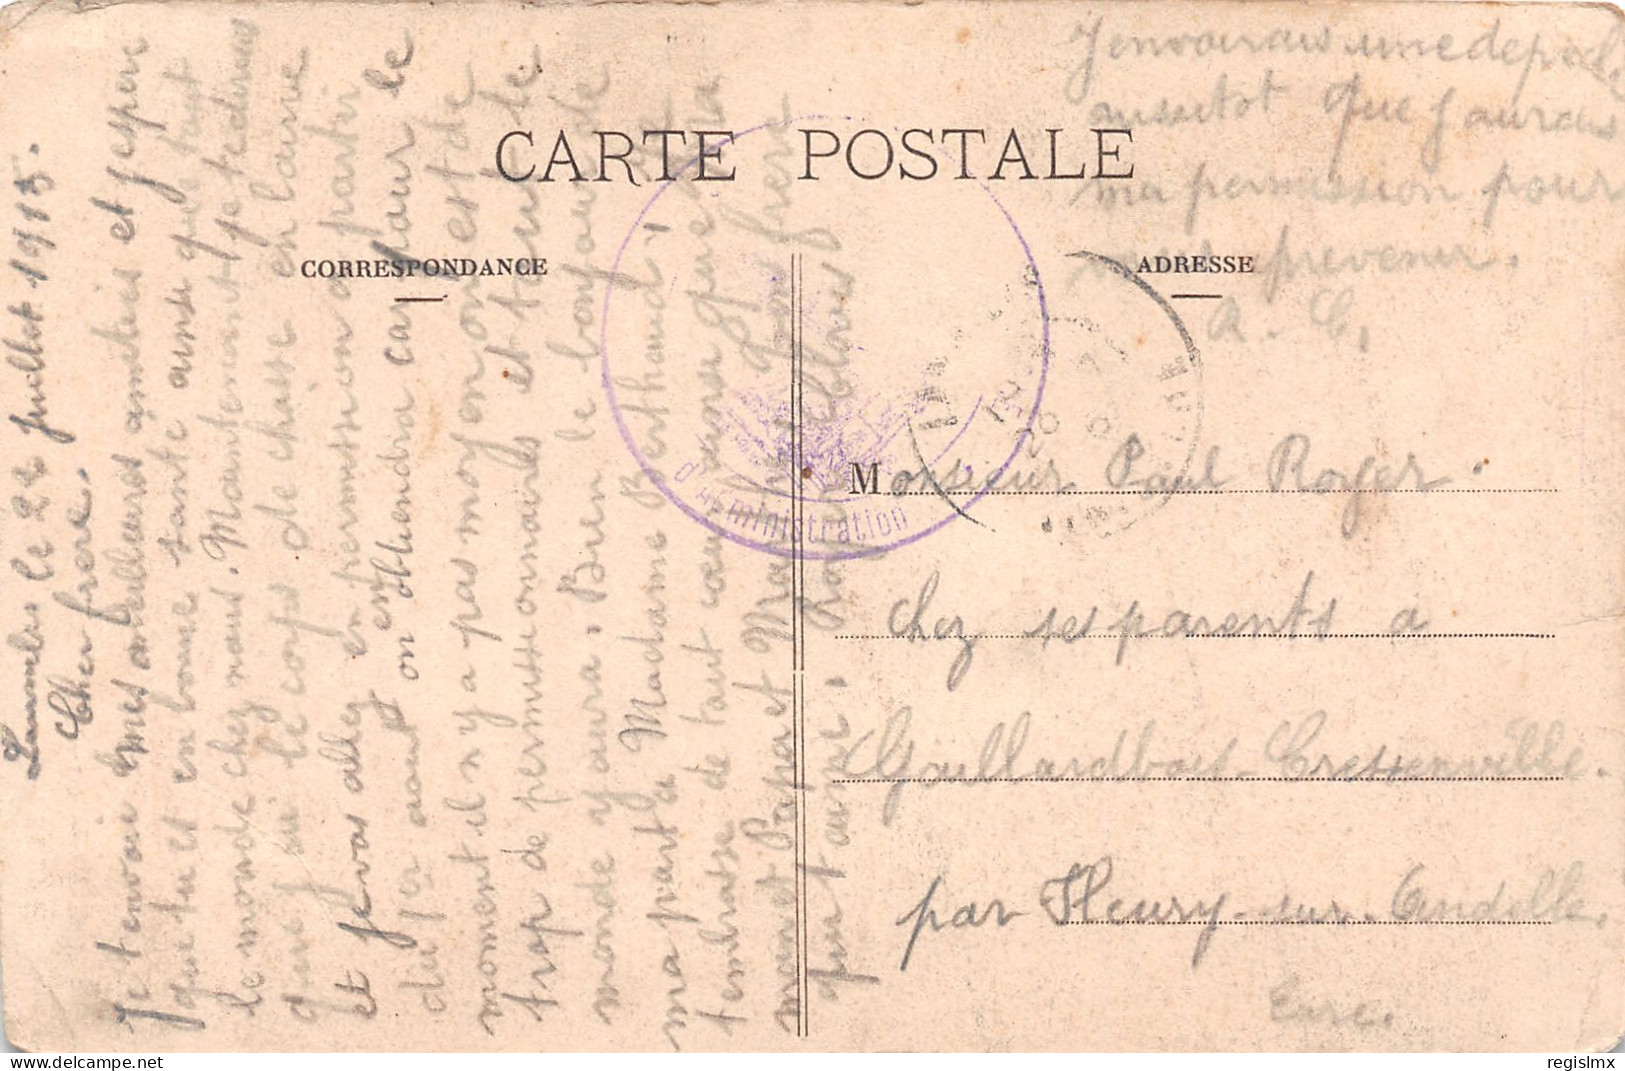 CARTE POSTALE
CORRESPONDANCE
ADRESSE
le 24 Juillet 1915.
Cher frere.
Je tenvoie mes meilleurs amitiés et jespere
que tu et en bonne santé ainsi que tout
le monde chez nous. Maintenant je te dirais
que jai le corps de chasse en laisse
et je vas aller en permission a partir
du 1er aout est on obtiendra car pour le
moment il n'y a pas moyen on est de
trop de permissionnaires et tout le
monde y aura. Bien le bonjour de
ma part a Madame Berthaud,
tembrasse de tout cœur ainsi que ma
maman et Papa et ton frere
qui taime.
J'envoirais une depeche
aussitot que j'aurais
ma permission pour
vous prevenir.
A. C,
d'Administration
Monsieur Paul Roger.
chez ses parents a
Gaillardbois-Cressenville.
par Fleury-sur-Andelle.
Eure.
regislmx